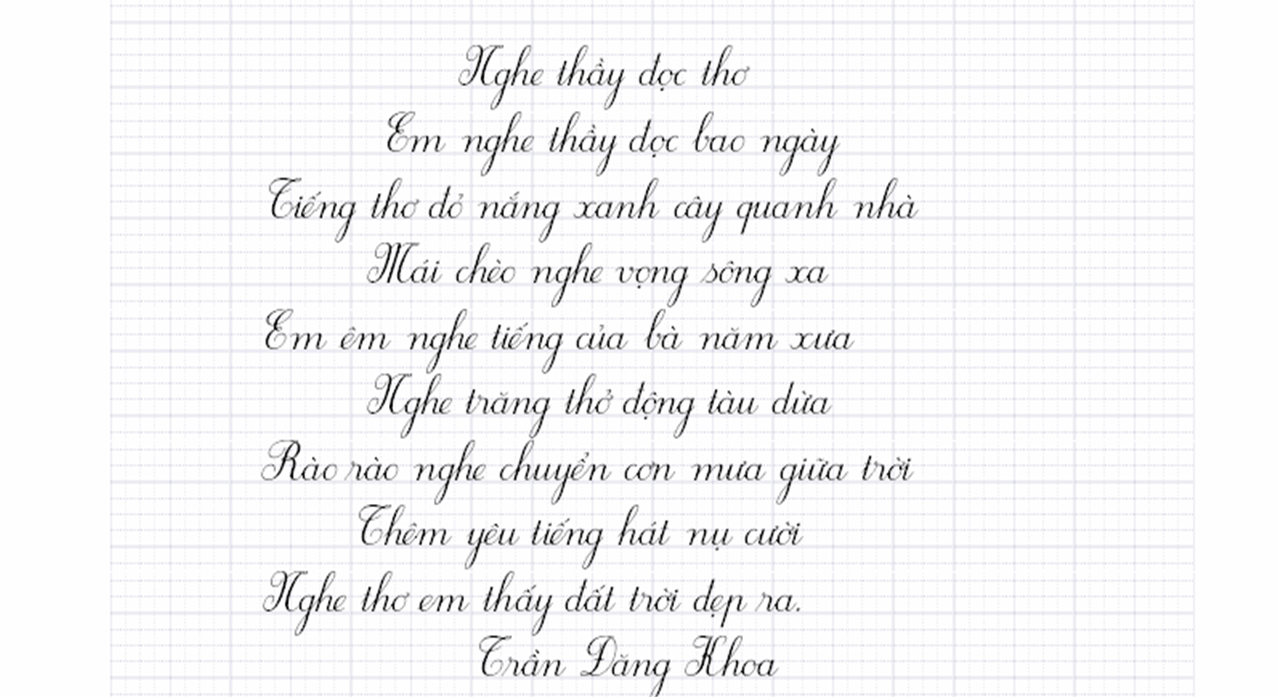 Nghe thầy đọc thơ
Em nghe thầy đọc bao ngày
Tiếng thơ đỏ nắng xanh cây quanh nhà
Mái chèo nghe vọng sông xa
Êm êm nghe tiếng của bà năm xưa
Nghe trăng thở động tàu dừa
Rào rào nghe chuyển cơn mưa giữa trời
Thêm yêu tiếng hát nụ cười
Nghe thơ em thấy đất trời đẹp ra.
Trần Đăng Khoa